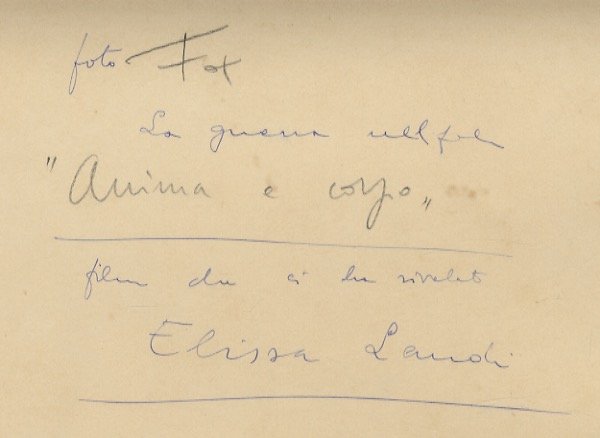 foto Fox
La guerra nel film
"Anima e corpo"
film che ci ha rivelato
Elissa Landi